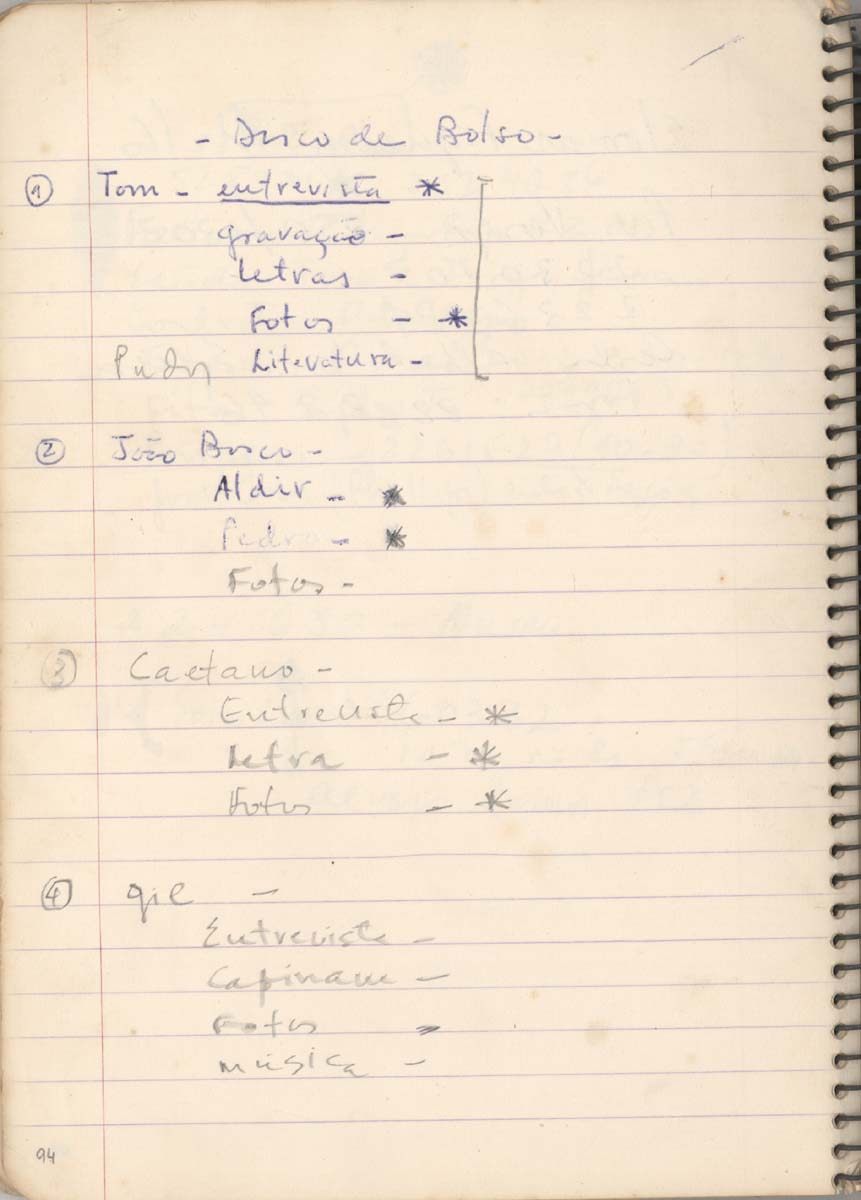 - Disco de Bolso -
① Tom - entrevista *
gravação -
Letras -
Fotos - *
Literatura -
② João Bosco -
Aldir - *
Pedro - *
Fotos -
③ Caetano -
Entrevista - *
Letra - *
Fotos - *
④ gil -
Entrevista -
Capinam -
Fotos -
música -
94